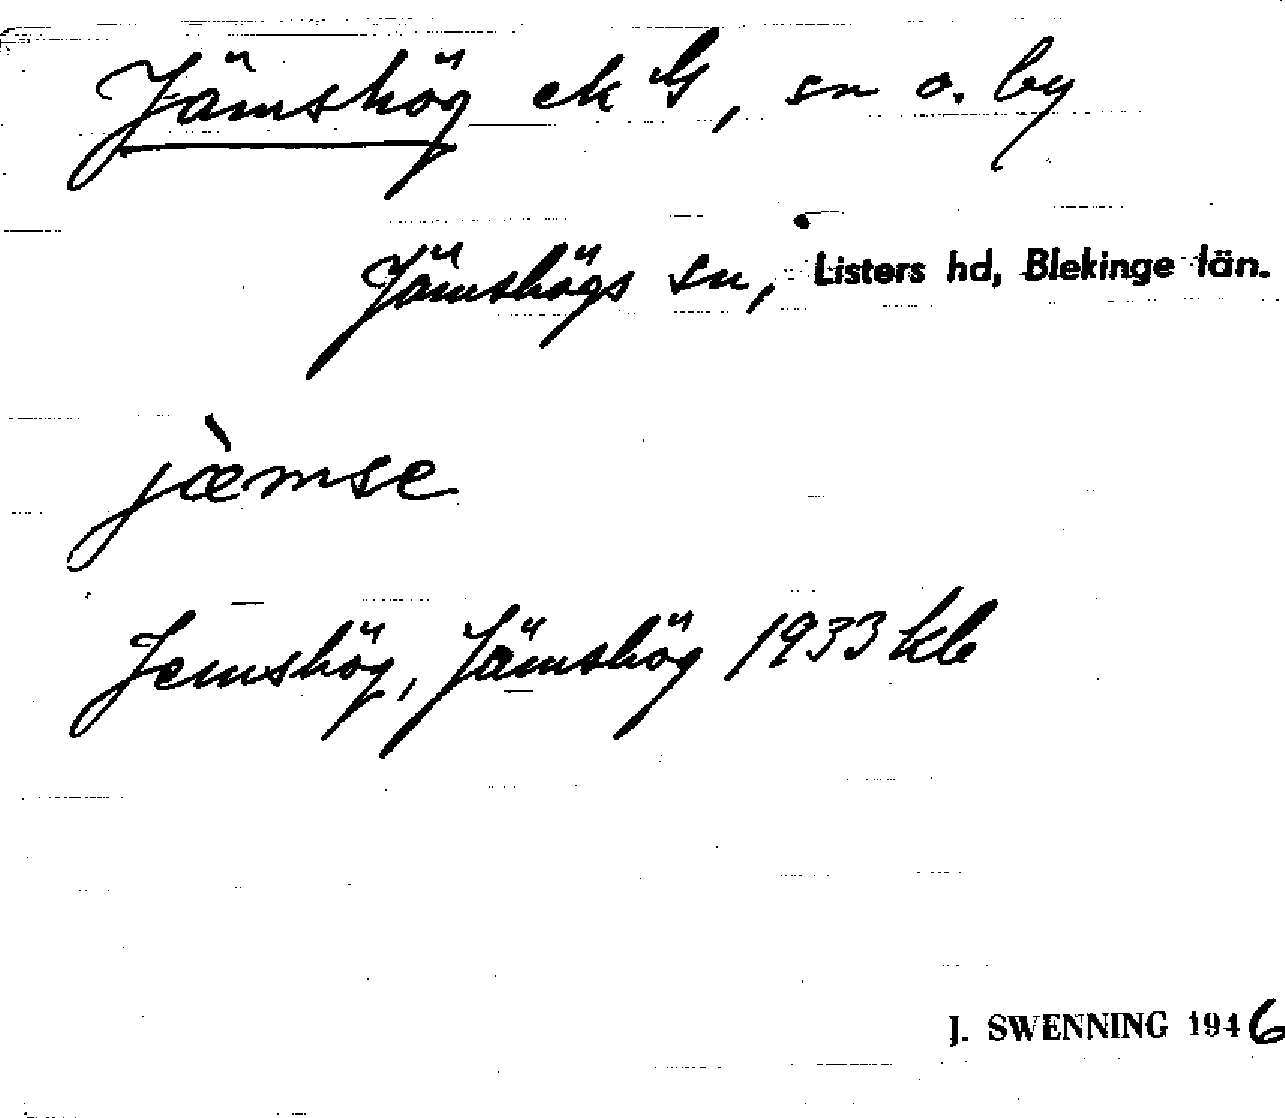 Jämshög ek G, sn o. by
Jämshögs sn, Listers hd, Blekinge län.
jæ̀mse
Jemshög, Jämshög 1933 kb
J. SWENNING 1946